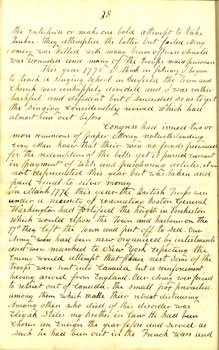 38
the ratifiers or make one bold attempt to take
Quebec. They attempted the latter but failed Mont-
gomery was killed with many brave officers Arnold
was wounded and many of the troops made prisoners
This year 1775 I think in february I began
to teach a singing school in Enfield the Town and
Church was unhappily divided and I was rather
bashful and diffident but I succeeded so as to get
the singing considerably revived which had
almost run out before
Congress had issued two or
more emissions of paper Money notwithstanding
every Man knew that their was no funds provided
for the redemption of the bills yet it passed current
in payment of debts and purchasing articles, it was
not depreciated this year but was taken and
paid equal to silver money
In March 1776 this year the British Troops were
under a necessity of evacuating Boston General
Washington had fortified the heights in Dorchester
which would expose the Town and Harbour on the
17th they left the Town and put off to sea. Our
Army now had been new organized by enlistments
and was marched to New York expecting the
Enemy would attempt that place next some of the
Troops were sent into Canada but a reinforcement
having arrived from England Our Army was forced
to retreat out of Canada. The small pox prevailing
among them which made their retreat distressing
Among others who died of this disorder was
Elijah Steele my brother in law He had been
Chosen an Ensign the year before and served as
such he had been out in the French wars and